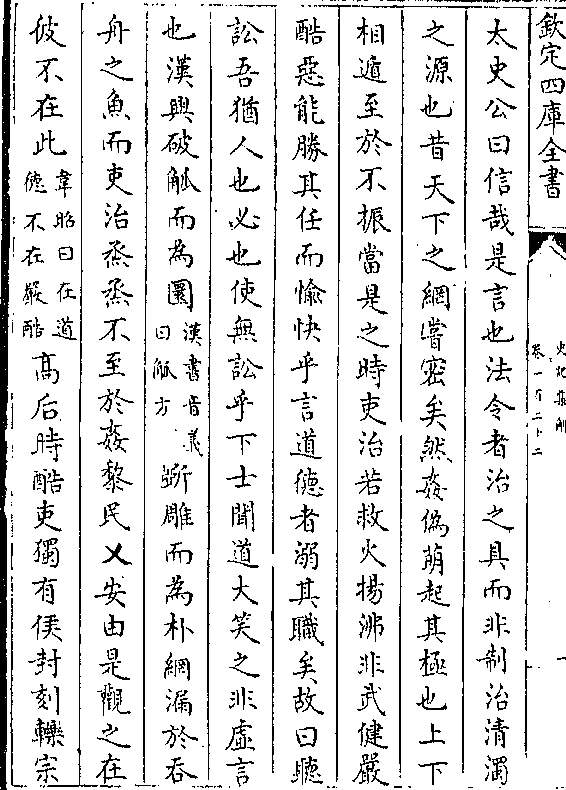 欽定四庫全書
史記集解
卷一百二十二
一
太史公曰信哉是言也法令者治之具而非制治清濁
之源也昔天下之網嘗密矣然姦偽萌起其極也上下
相遁至於不振當是之時吏治若救火揚沸非武健嚴
酷惡能勝其任而愉快乎言道德者溺其職矣故曰聽
訟吾猶人也必也使無訟乎下士聞道大笑之非虛言
也漢興破觚而為圜漢書音義曰觚方斲雕而為朴網漏於吞
舟之魚而吏治烝烝不至於姦黎民乂安由是觀之在
彼不在此韋昭曰在道德不在嚴酷高后時酷吏獨有侯封刻轢宗